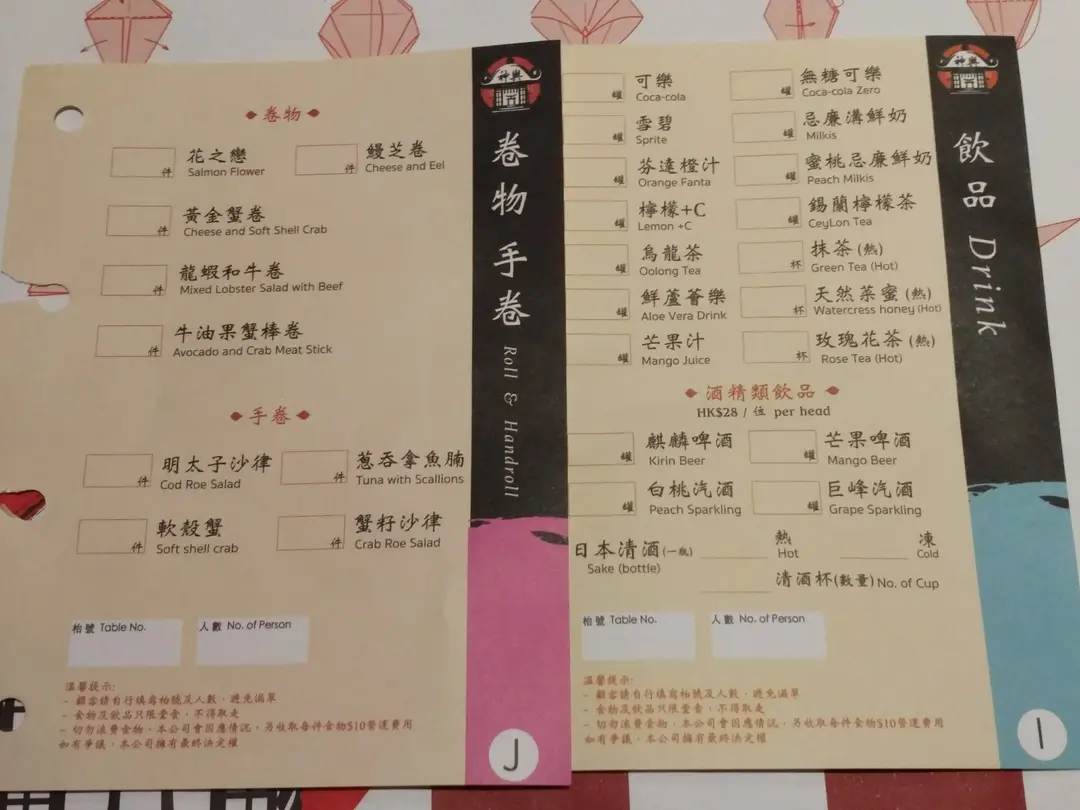 卷物
件 花之戀
Salmon Flower
件 鰻芝卷
Cheese and Eel
件 黃金蟹卷
Cheese and Soft Shell Crab
件 龍蝦和牛卷
Mixed Lobster Salad with Beef
件 牛油果蟹棒卷
Avocado and Crab Meat Stick
手卷
件 明太子沙律
Cod Roe Salad
件 蔥吞拿魚腩
Tuna with Scallions
件 軟殼蟹
Soft shell crab
件 蟹籽沙律
Crab Roe Salad
枱號 Table No.
人數 No. of Person
溫馨提示:
- 顧客請自行填寫枱號及人數，避免漏單
- 食物及飲品只限堂食，不得取走
- 切勿浪費食物，本公司會因應情況，另收取每件食物$10營運費用
如有爭議，本公司擁有最終決定權
神樂
卷物 手卷 Roll & Handroll
J
罐 可樂
Coca-cola
罐 無糖可樂
Coca-cola Zero
罐 雪碧
Sprite
罐 忌廉溝鮮奶
Milkis
罐 芬達橙汁
Orange Fanta
罐 蜜桃忌廉鮮奶
Peach Milkis
罐 檸檬+C
Lemon +C
罐 錫蘭檸檬茶
CeyLon Tea
罐 烏龍茶
Oolong Tea
杯 抹茶(熱)
Green Tea (Hot)
罐 鮮蘆薈樂
Aloe Vera Drink
杯 天然菜蜜(熱)
Watercress honey (Hot)
罐 芒果汁
Mango Juice
杯 玫瑰花茶(熱)
Rose Tea (Hot)
酒精類飲品
HK$28 / 位 per head
罐 麒麟啤酒
Kirin Beer
罐 芒果啤酒
Mango Beer
罐 白桃汽酒
Peach Sparkling
罐 巨峰汽酒
Grape Sparkling
日本清酒(一瓶)
Sake (bottle)
熱
Hot
凍
Cold
清酒杯(數量) No. of Cup
枱號 Table No.
人數 No. of Person
溫馨提示:
- 顧客請自行填寫枱號及人數，避免漏單
- 食物及飲品只限堂食，不得取走
- 切勿浪費食物，本公司會因應情況，另收取每件食物$10營運費用
如有爭議，本公司擁有最終決定權
神樂
飲品 Drink
I